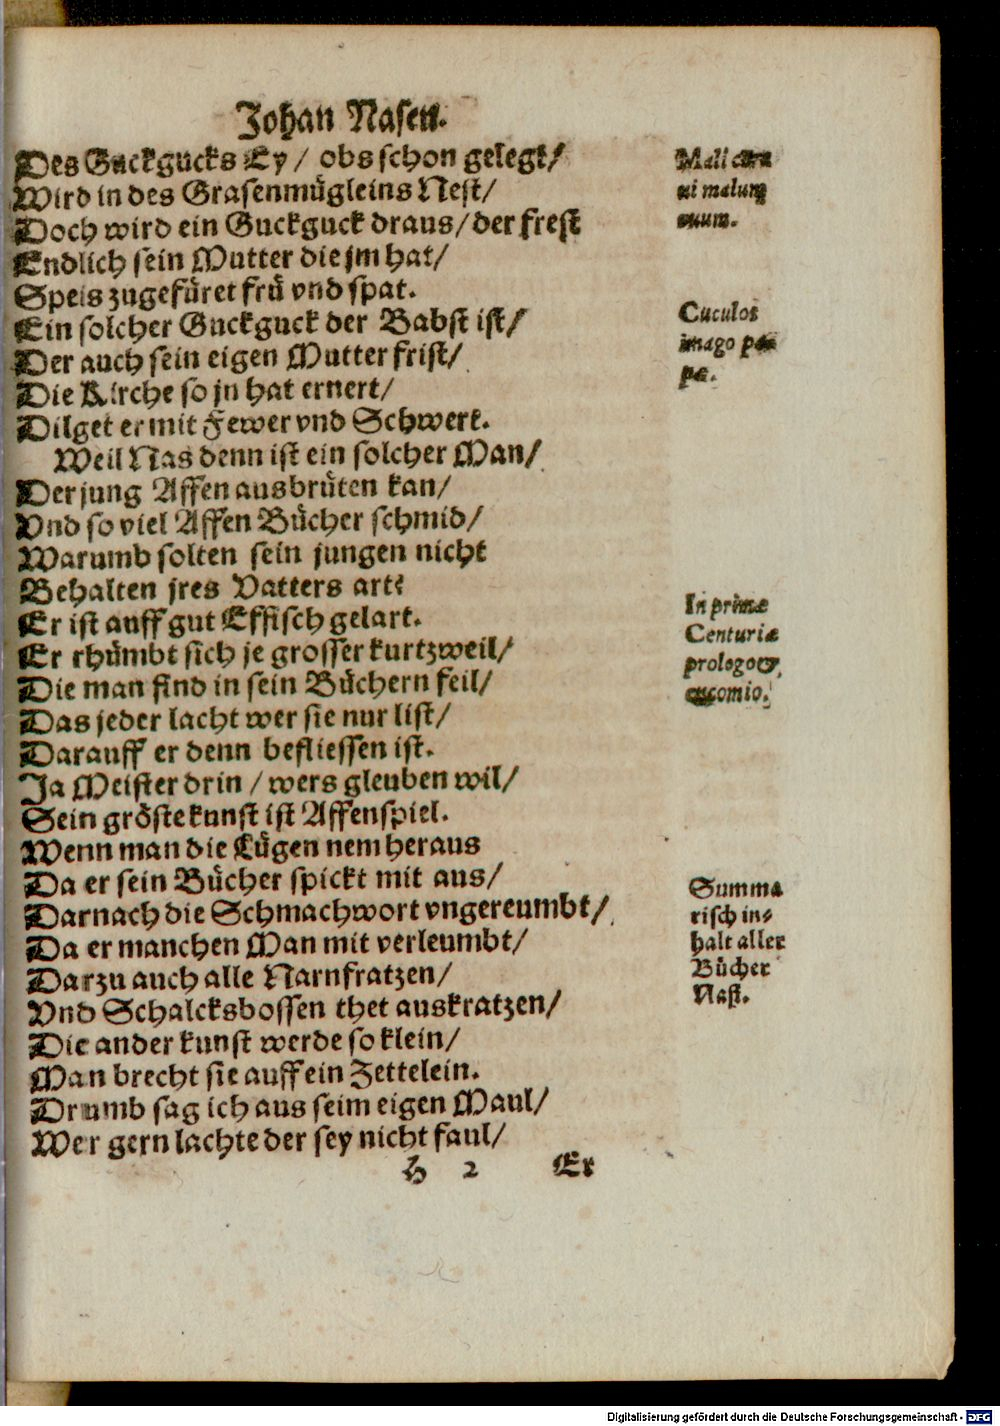 Johan Nasen.
Des Guckgucks Ey / obs schon gelegt/
Wird in des Grasenmügleins Nest/
Doch wird ein Guckguck draus/ der frest
Endlich sein Mutter die jm hat/
Speis zugefüret frü vnd spat.
Ein solcher Guckguck der Babst ist/
Der auch sein eigen Mutter frist/
Die Kirche so jn hat ernert/
Dilget er mit Fewer vnd Schwert.
Weil Nas denn ist ein solcher Man/
Der jung Affen ausbrüten kan/
Vnd so viel Affen Bücher schmid/
Warumb solten sein jungen nicht
Behalten jres Vatters art?
Er ist auff gut Effisch gelart.
Er rhümbt sich je grosser kurtzweil/
Die man find in sein Büchern feil/
Das jeder lacht wer sie nur list/
Darauff er denn befliessen ist.
Ja Meister drin / wers gleuben wil/
Sein gröste kunst ist Affenspiel.
Wenn man die Lügen nem heraus
Da er sein Bücher spickt mit aus/
Darnach die Schmachwort vngereumbt/
Da er manchen Man mit verleumbt/
Darzu auch alle Narnfratzen/
Vnd Schalcksbossen thet auskratzen/
Die ander kunst werde so klein/
Man brecht sie auff ein Zettelein.
Drumb sag ich aus seim eigen Maul/
Wer gern lachte der sey nicht faul/
H 2 Er
Mali
ui malum
ouum.
Cuculos
imago pa
pæ.
In primæ
Centuriæ
prologo &
encomio.
Summa
risch in-
halt aller
Bücher
Nast.
Digitalisierung gefördert durch die Deutsche Forschungsgemeinschaft - DFG